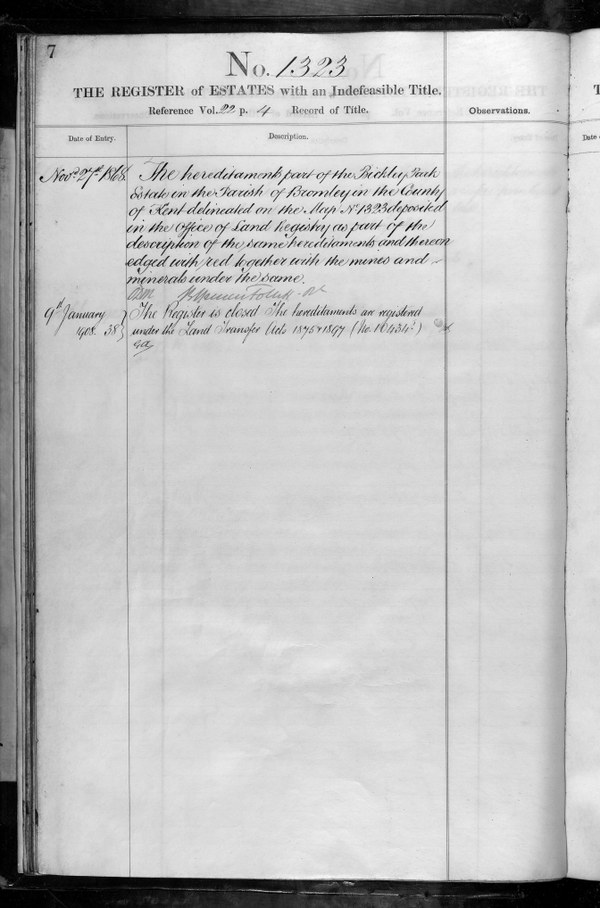 7
No. 1323
THE REGISTER of ESTATES with an Indefeasible Title.
Reference Vol. 22 p. 4 Record of Title.
Observations.
Date of Entry.
Description.
Novr. 27th. 1868.
The hereditaments part of the Bickley Park
Estate in the Parish of Bromley in the County
of Kent delineated on the Map No. 1323 deposited
in the Office of Land Registry as part of the
description of the same hereditaments and thereon
edged with red together with the mines and
minerals under the same.
9th January
1908. 38
The Register is closed The hereditaments are registered
under the Land Transfer Acts 1875 & 1897 (No. 16434)
T
Date